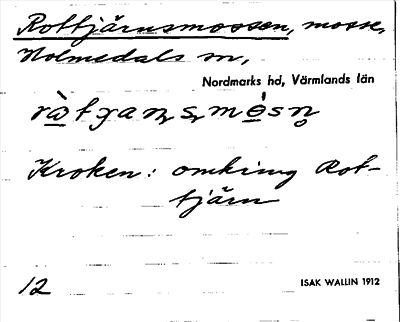 Rottjärnsmossen, mosse,
Holmedals sn,
Nordmarks hd, Värmlands län
Kroken: omkring Rot-
tjärn
12
ISAK WALLIN 1912